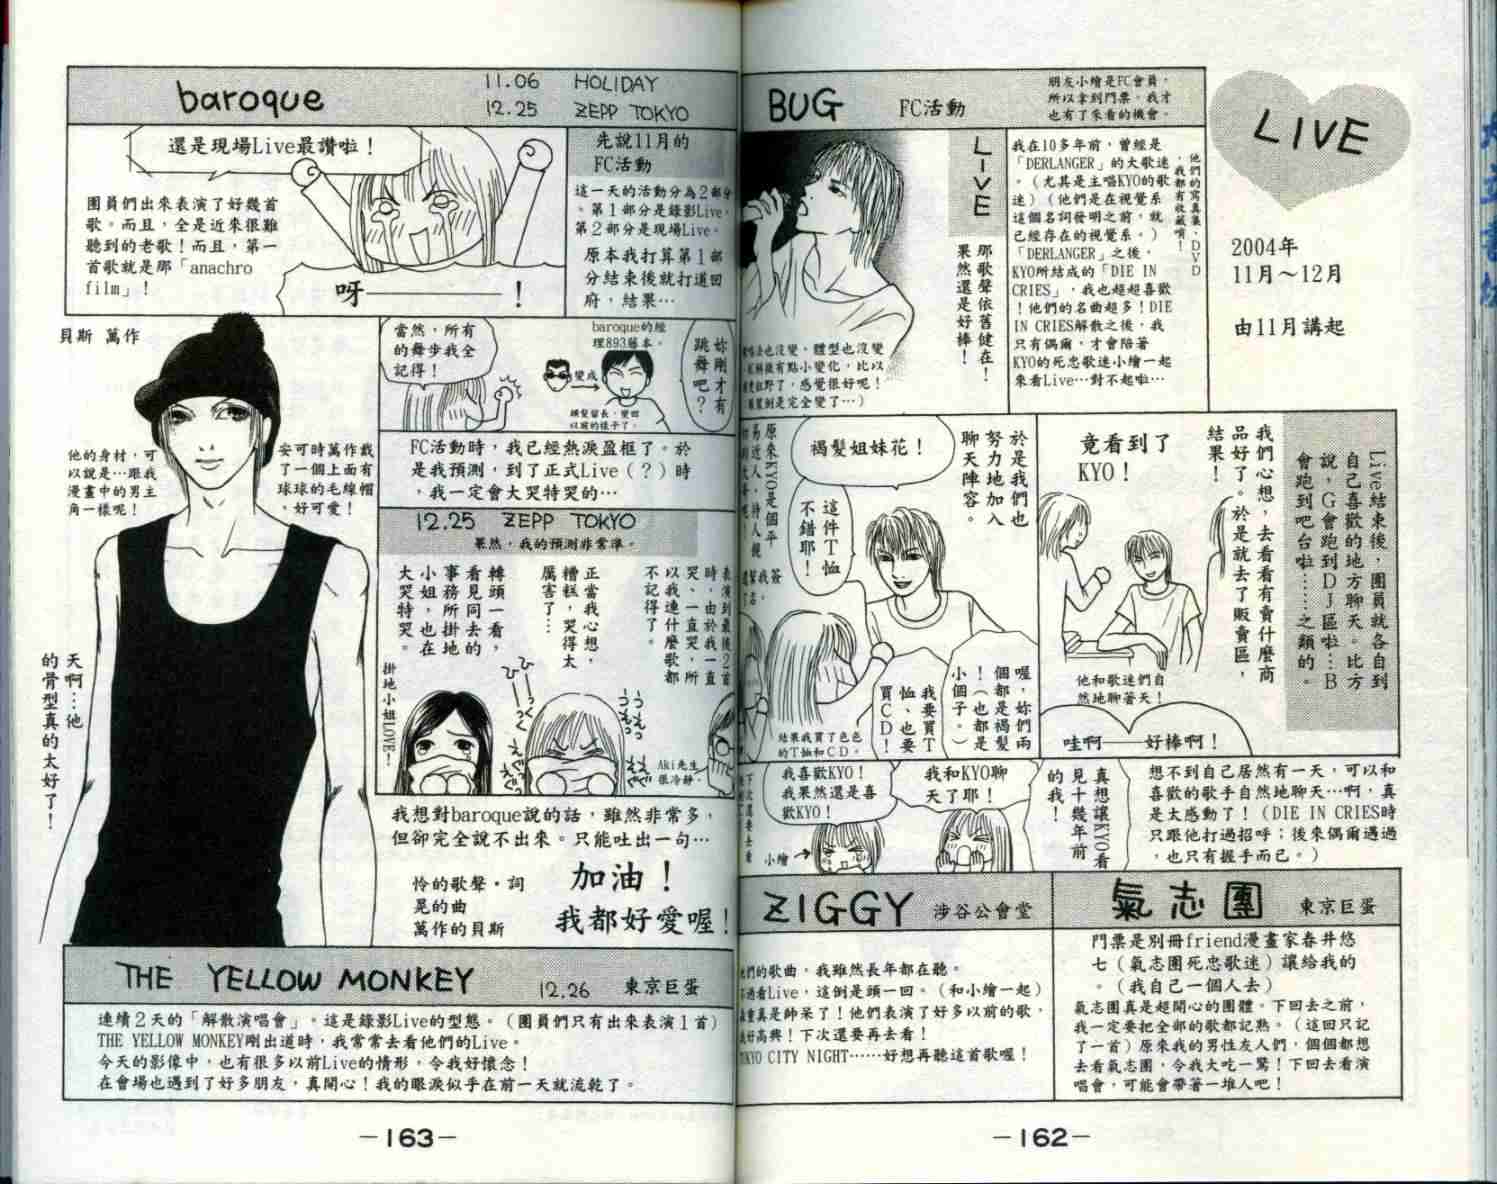 LIVE
2004年
11月～12月
由11月講起
BUG
FC活動
朋友小繪是FC會員，
所以拿到門票，我才
也有了來看的機會。
我在10多年前，曾經是
「DERLANGER」的大歌迷
。（尤其是主唱KYO的歌
迷）（他們是在視覺系
這個名詞發明之前，就
已經存在的視覺系。）
「DERLANGER」之後，
KYO所結成的「DIE IN
CRIES」，我也超超喜歡
！他們的名曲超多！DIE
IN CRIES解散之後，我
只有偶爾，才會陪著
KYO的死忠歌迷小繪一起
來看Live…對不起啦…
他們的寫真集、DVD
，我都有收藏唷！
LIVE
那歌聲依舊健在！
果然還是好棒！
Live結束後，團員就各自到
自己喜歡的地方聊天。比方
說，G會跑到DJ區啦…B
會跑到吧台啦……之類的。
我們心想，去看看有賣什麼商
品好了。於是就去了販賣區，
結果！
竟看到了
KYO！
他和歌迷們自
然地聊著天！
哇啊——好棒啊！
於是我們也
努力地加入
聊天陣容。
褐髮姐妹花！
這件T恤
不錯耶！
喔，妳們兩
個都是褐髮
！（也都是
小個子。）
我要買T
恤、也要
買CD！
結果我買了色色
的T恤和CD。
想不到自己居然有一天，可以和
喜歡的歌手自然地聊天…啊，真
是太感動了！（DIE IN CRIES時
只跟他打過招呼；後來偶爾遇過
，也只有握手而已。）
真想讓KYO看
見十幾年前
的我！
我和KYO聊
天了耶！
我喜歡KYO！
我果然還是喜
歡KYO！
小繪→
氣志團
東京巨蛋
門票是別冊friend漫畫家春井悠
七（氣志團死忠歌迷）讓給我的
。（我自己一個人去）
氣志團真是超開心的團體。下回去之前，
我一定要把全部的歌都記熟。（這回只記
了一首）原來我的男性友人們，個個都想
去看氣志團，令我大吃一驚！下回去看演
唱會，可能會帶著一堆人吧！
ZIGGY
涉谷公會堂
們的歌曲，我雖然長年都在聽。
過看Live，這倒是頭一回。（和小繪一起）
真是帥呆了！他們表演了好多以前的歌，
好高興！下次還要再去看！
TOKYO CITY NIGHT……好想再聽這首歌喔！
－162－
baroque
11.06 HOLIDAY
12.25 ZEPP TOKYO
先說11月的
FC活動
這一天的活動分為2部分
。第1部分是錄影Live，
第2部分是現場Live。
原本我打算第1部
分結束後就打道回
府，結果…
還是現場Live最讚啦！
團員們出來表演了好幾首
歌。而且，全是近來很難
聽到的老歌！而且，第一
首歌就是那「anachro
film」！
呀————！
妳剛才有
跳舞吧？
baroque的經
理893藤本。
變成
頭髮留長，變回
以前的樣子了。
當然，所有
的舞步我全
記得！
FC活動時，我已經熱淚盈框了。於
是我預測，到了正式Live（？）時
，我一定會大哭特哭的…
12.25 ZEPP TOKYO
果然，我的預測非常準。
表演到最後2首
時，由於我一直
哭、一直哭，所
以我連什麼歌都
不記得了。
正當我心想，
糟糕，哭得太
厲害了…
轉頭一看，
看見同去的
事務所掛地
小姐，也在
大哭特哭。
掛地小姐LOVE！
Aki先生
很冷靜。
我想對baroque說的話，雖然非常多，
但卻完全說不出來。只能吐出一句…
加油！
我都好愛喔！
怜的歌聲・詞
晃的曲
萬作的貝斯
貝斯 萬作
他的身材，可
以說是…跟我
漫畫中的男主
角一樣呢！
安可時萬作戴
了一個上面有
球球的毛線帽
，好可愛！
天啊…他
的骨型真的太好了！
THE YELLOW MONKEY
12.26 東京巨蛋
連續2天的「解散演唱會」。這是錄影Live的型態。（團員們只有出來表演1首）
THE YELLOW MONKEY剛出道時，我常常去看他們的Live。
今天的影像中，也有很多以前Live的情形，令我好懷念！
在會場也遇到了好多朋友，真開心！我的眼淚似乎在前一天就流乾了。
－163－